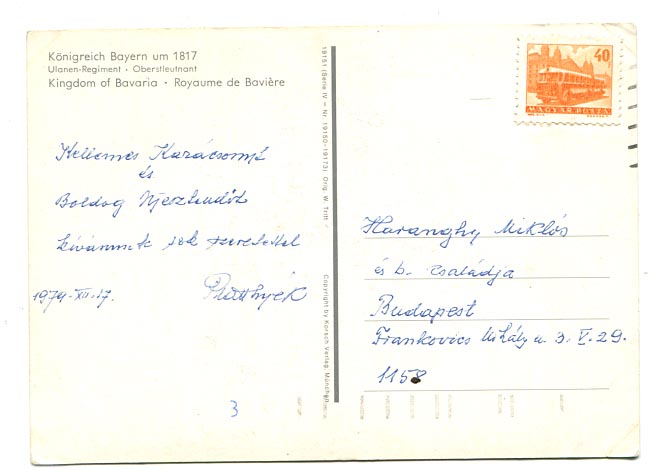 Königreich Bayern um 1817
Ulanen-Regiment · Oberstleutnant
Kingdom of Bavaria · Royaume de Bavière
Kellemes Karácsonyt
és
Boldog Újesztendőt
kívánunk sok szeretettel
1979. XII. 17.
3
19151 (Serie IV – Nr. 19150-19173) Orig. W. Tritt
Copyright by Korsch Verlag, München
40
MAGYAR POSTA
Haranghy Miklós
és b. családja
Budapest
Frankovics Mihály u. 3. V. 29.
1158